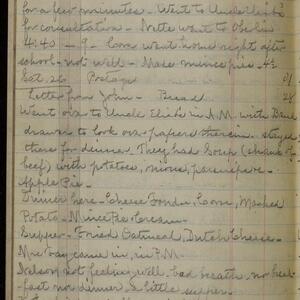 for a few minutes - Went to Uncle Elish's
for consultation - Nette went to Oberlin
4:40 - Cora went home right after
school - not well - Made mince pie
Sat. 26 Postage 01
Letter from John - Bread 28
Went over to Uncle Elish's in A.M. with
drawn to look over papers therein - stayed
there for dinner. They had Soup (shank of
beef) with potatoes, mince,
Apple Pie -
Dinner here - Cheese Fondu, Corn, Mashed
Potato - Mince Pie
Supper - Fried Oatmeal, Dutch Cheese -
Mrs Day came in, in P.M.
Nelson not feeling well, bad breath, no break-
fast nor dinner, a little supper -